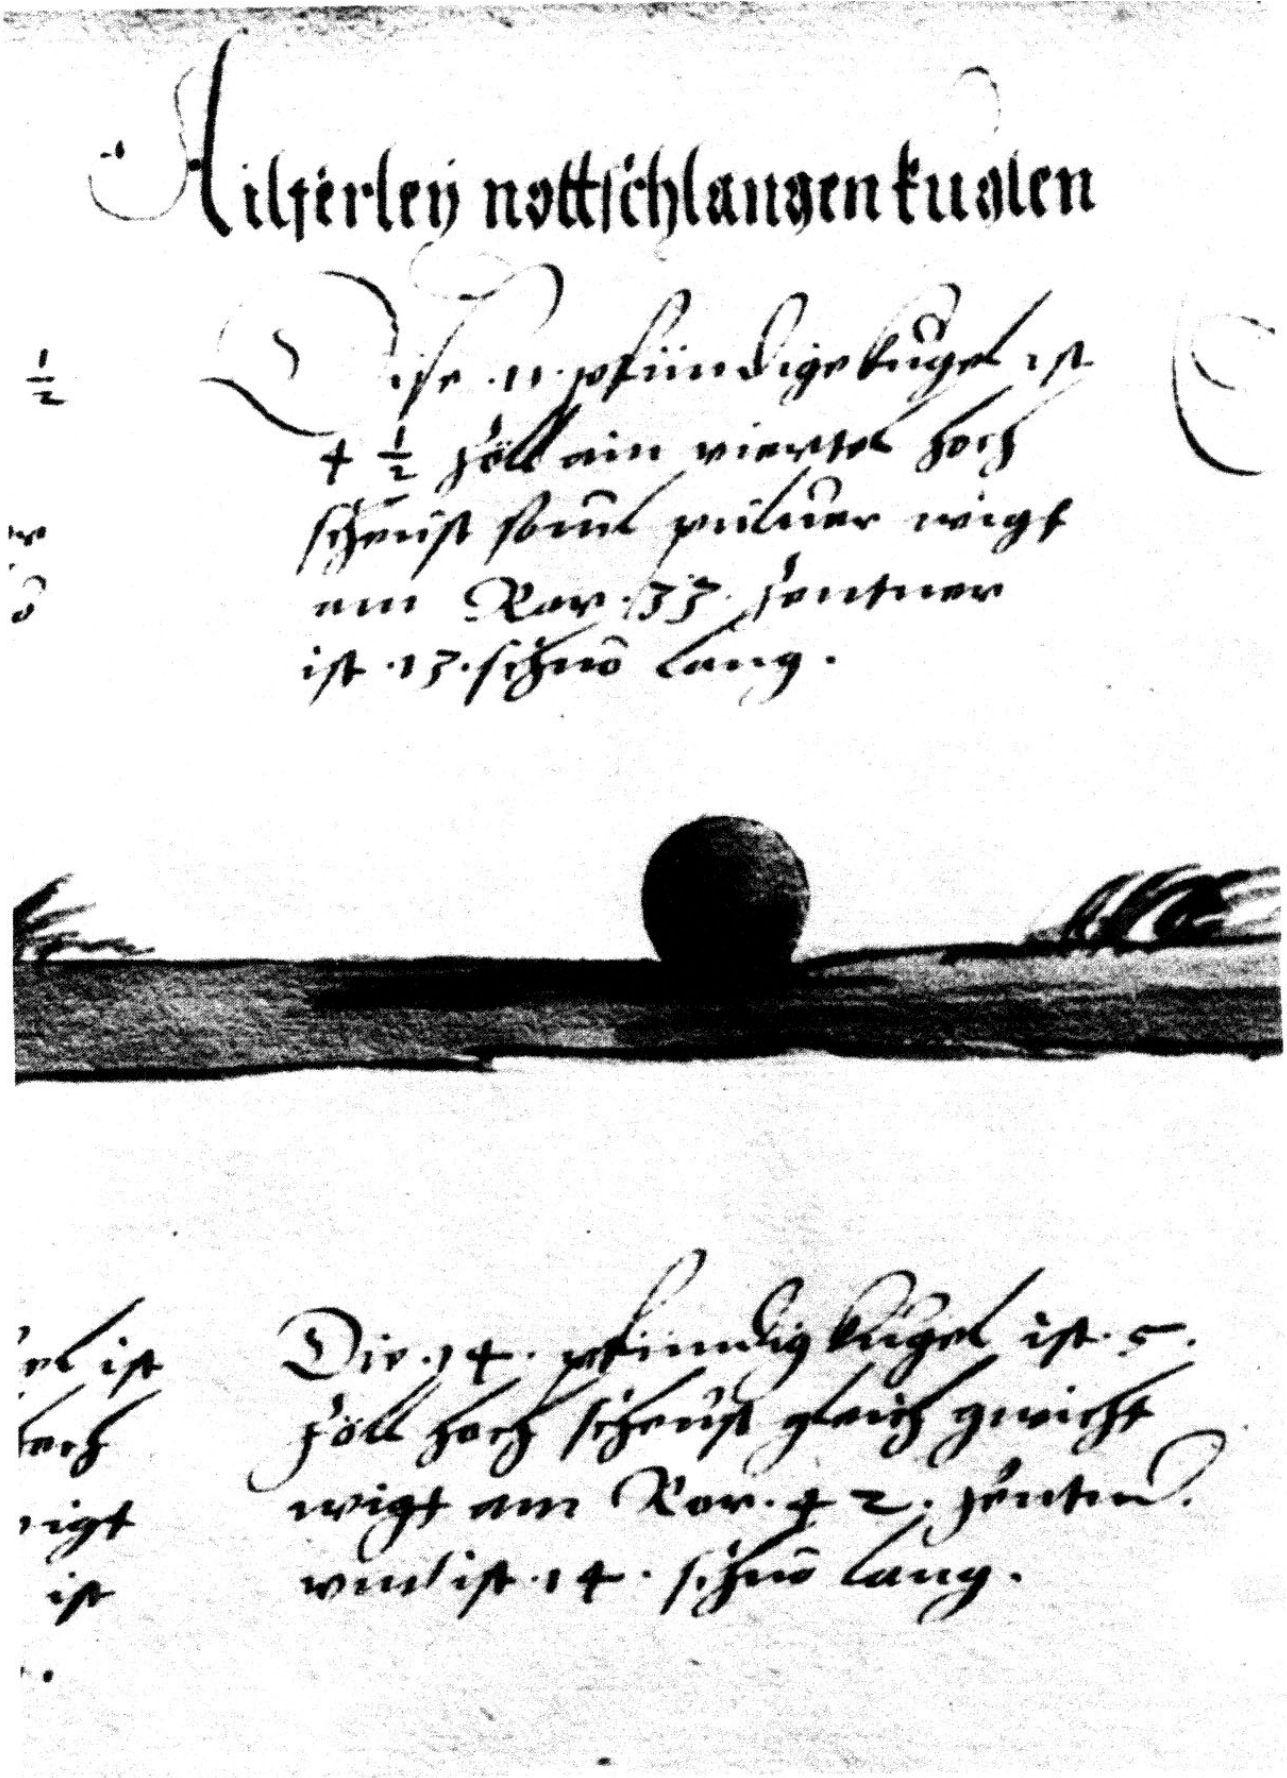 Ailferley nottschlangen kuglen
Dise .11. pfündige kugel ist
4 1/2 zöll ain viertel hoch
scheust souil puluer wigt
am Ror .33. zentner
ist .13. schuo lang.
Die .14. pfündig kugel ist .5.
zöll hoch scheust gleich gwicht
wigt am Ror .42. zentner.
vnd ist .14. schuo lang.
1/2
el ist
hoch
wigt
ist